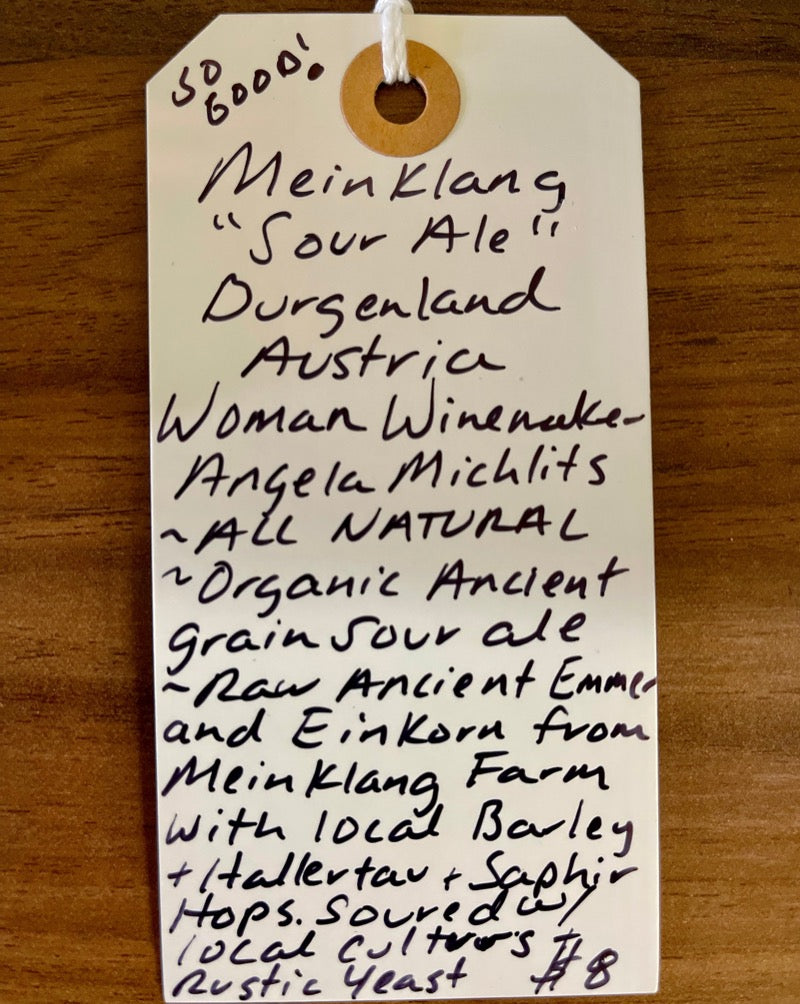 SO
GOOD!
MeinKlang
"Sour Ale"
Burgenland
Austria
Woman Winemaker
Angela Michlits
~ALL NATURAL
~Organic Ancient
grain sour ale
~Raw Ancient Emmer
and EinKorn from
MeinKlang Farm
with local Barley
+ Hallertau + Saphir
Hops. Soured w/
local cultures +
Rustic Yeast $8